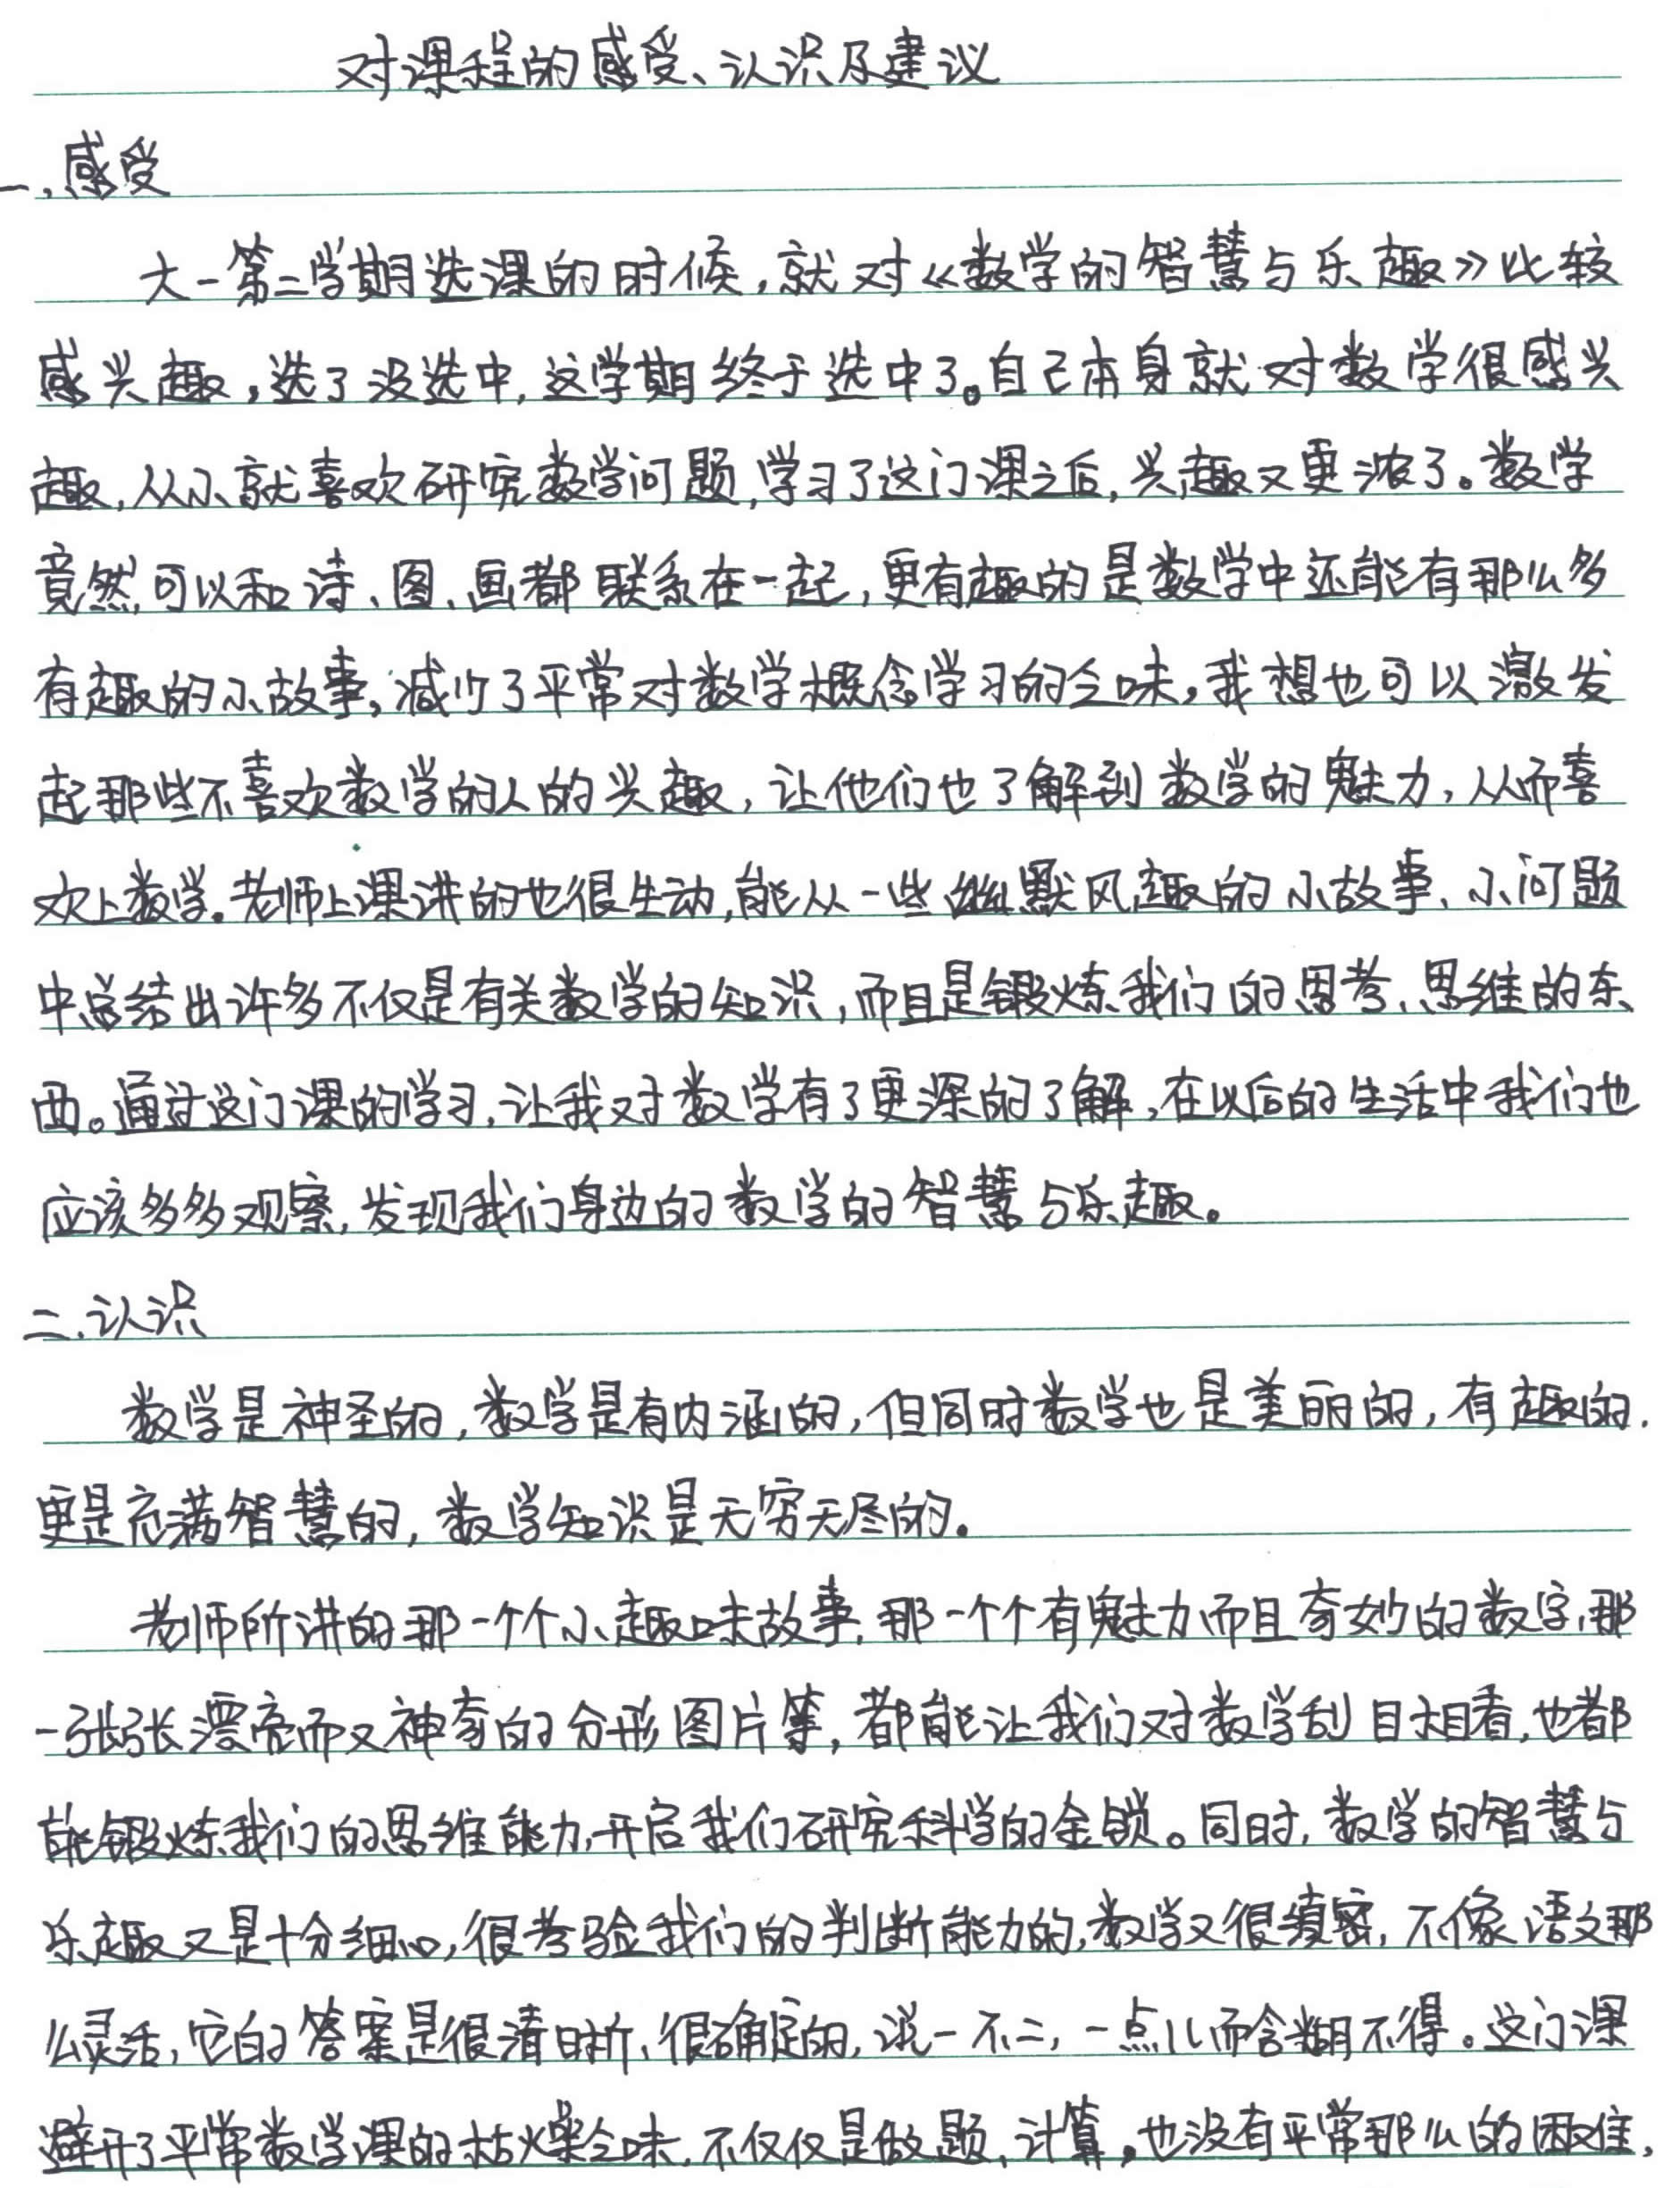 对课程的感受、认识及建议
一、感受
大一第二学期选课的时候,就对《数学的智慧与乐趣》比较
感兴趣,选了没选中,这学期终于选中了。自己本身就对数学很感兴
趣,从小就喜欢研究数学问题,学习了这门课之后,兴趣又更浓了。数学
竟然可以和诗、图、画都联系在一起,更有趣的是数学中还能有那么多
有趣的小故事,减少了平常对数学概念学习的乏味,我想也可以激发
起那些不喜欢数学的人的兴趣,让他们也了解到数学的魅力,从而喜
欢上数学。老师上课讲的也很生动,能从一些幽默风趣的小故事、小问题
中总结出许多不仅是有关数学的知识,而且是锻炼我们的思考、思维的东
西。通过这门课的学习,让我对数学有了更深的了解,在以后的生活中我们也
应该多多观察,发现我们身边的数学的智慧与乐趣。
二、认识
数学是神圣的,数学是有内涵的,但同时数学也是美丽的,有趣的,
更是充满智慧的,数学知识是无穷无尽的。
老师所讲的那一个个小趣味故事,那一个个有魅力而且奇妙的数字,那
一张张漂亮而又神奇的分形图片等,都能让我们对数学刮目相看,也都
能锻炼我们的思维能力,开启我们研究科学的金锁。同时,数学的智慧与
乐趣又是十分细心,很考验我们的判断能力的,数学又很缜密,不像语文那
么灵活,它的答案是很清晰、很确定的,说一不二,一点儿而含糊不得。这门课
避开了平常数学课的枯燥乏味,不仅仅是做题、计算,也没有平常那么的困难,